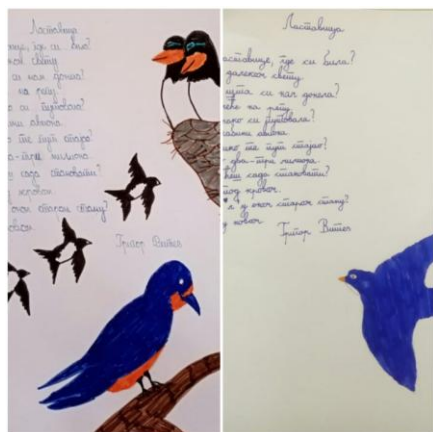 Ластавица
где си била?
свету
си нам донела?
на репу.
си путовала?
авиона.
те пут стаје?
три милиона.
сада становати?
кровом
оном старом стану?
Григор Витез
Ластавица
где си била?
далеком свету.
шта си нам донела?
на репу.
си путовала?
авиона.
те пут стајао?
два-три милиона.
сада становати?
под кровом.
у оном старом стану?
у новом.
Григор Витез